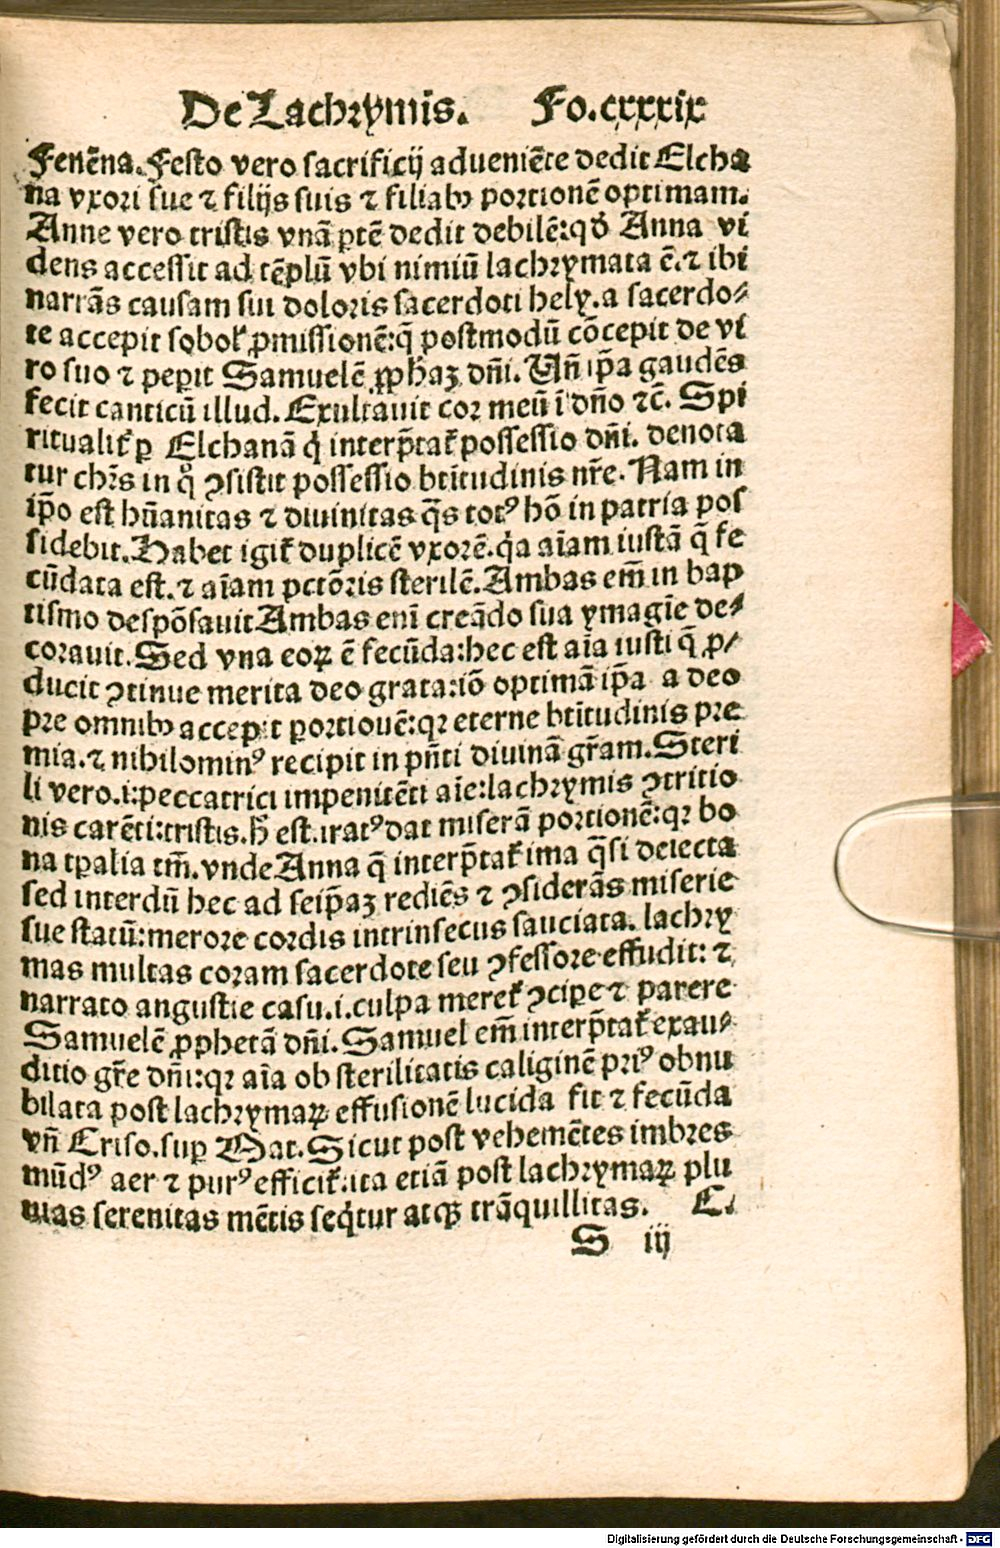 De Lachrymis. Fo.cxxxix
Fenēna. Festo vero sacrificij adueniēte dedit Elcha
na vxori sue ⁊ filijs suis ⁊ filiabꝰ portionē optimam.
Anne vero tristis vnā ꝑtē dedit debilē: qđ Anna vi
dens accessit ad tēplū vbi nimiū lachrymata ē. ⁊ ibi
narrās causam sui doloris sacerdoti hely. a sacerdo⸗
te accepit sobol̛ ꝓmissionē: q̄ postmodū cōcepit de vi
ro suo ⁊ peꝑit Samuelē ꝓphaꝫ dn̄i. Vn̄ ip̄a gaudēs
fecit canticū illud. Exultauit cor meū ī dn̄o ⁊c̄. Spi
ritualit̛ ꝑ Elchanā q̇ interp̄tat̛ possessio dn̄i. denota
tur chr̄s in q̊ ꝯsistit possessio btītudinis nr̄e. Nam in
ip̄o est hūanitas ⁊ diuinitas q̄s totꝰ hō in patria pos
sidebit. Habet igit̛ duplicē vxorē. q̇a aīam iustā q̄ fe
cūdata est. ⁊ aīam pctōris sterilē. Ambas em̄ in bap
tismo despōsauit Ambas enī creādo sua ymagīe de⸗
corauit. Sed vna eoꝝ ē fecūda: hec est aīa iusti q̄ ꝓ⸗
ducit ꝯtinue merita deo grata: iō optimā ip̄a a deo
pre omnibꝰ accepit portionē: qꝛ eterne btītudinis pre
mia. ⁊ nihilominꝰ recipit in pn̄ti diuinā gr̄am. Steri
li vero .i: peccatrici impenitēti aīe: lachrymis ꝯtritio
nis carēti: tristis. h̄ est. iratꝰ dat miserā portionē: qꝛ bo
na tꝑalia tm̄. vnde Anna q̄ interp̄tat̛ ima q̄si deiecta
sed interdū hec ad seip̄aꝫ rediēs ⁊ ꝯsiderās miserie
sue statū: merore cordis intrinsecus sauciata. lachry
mas multas coram sacerdote seu ꝯfessore effudit: ⁊
narrato angustie casu .i. culpa meret̛ ꝯciꝑe ⁊ parere
Samuelē ꝓphetā dn̄i. Samuel em̄ interp̄tat̛ exau⸗
ditio gr̄e dn̄i: qꝛ aīa ob sterilitatis caliginē priꝰ obnu
bilata post lachrymaꝝ effusionē lucida fit ⁊ fecūda
vn̄ Criso. suꝑ Mat. Sicut post vehemētes imbres
mūdꝰ aer ⁊ purꝰ efficit̛. ita etiā post lachrymaꝝ plu
uias serenitas mētis seq̇tur atqꝫ trāquillitas. C.
S iij
Digitalisierung gefördert durch die Deutsche Forschungsgemeinschaft - DFG